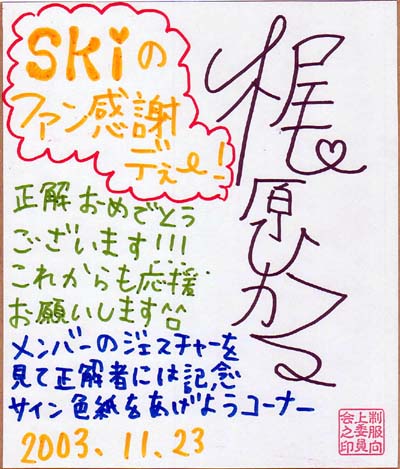 SKiの
ファン感謝
デェー!
正解おめでとう
ございます!!!
これからも応援
お願いします^^
メンバーのジェスチャーを
見て正解者には記念
サイン色紙をあげようコーナー
2003.11.23
梶原ひかる
制服向
上委員
会之印